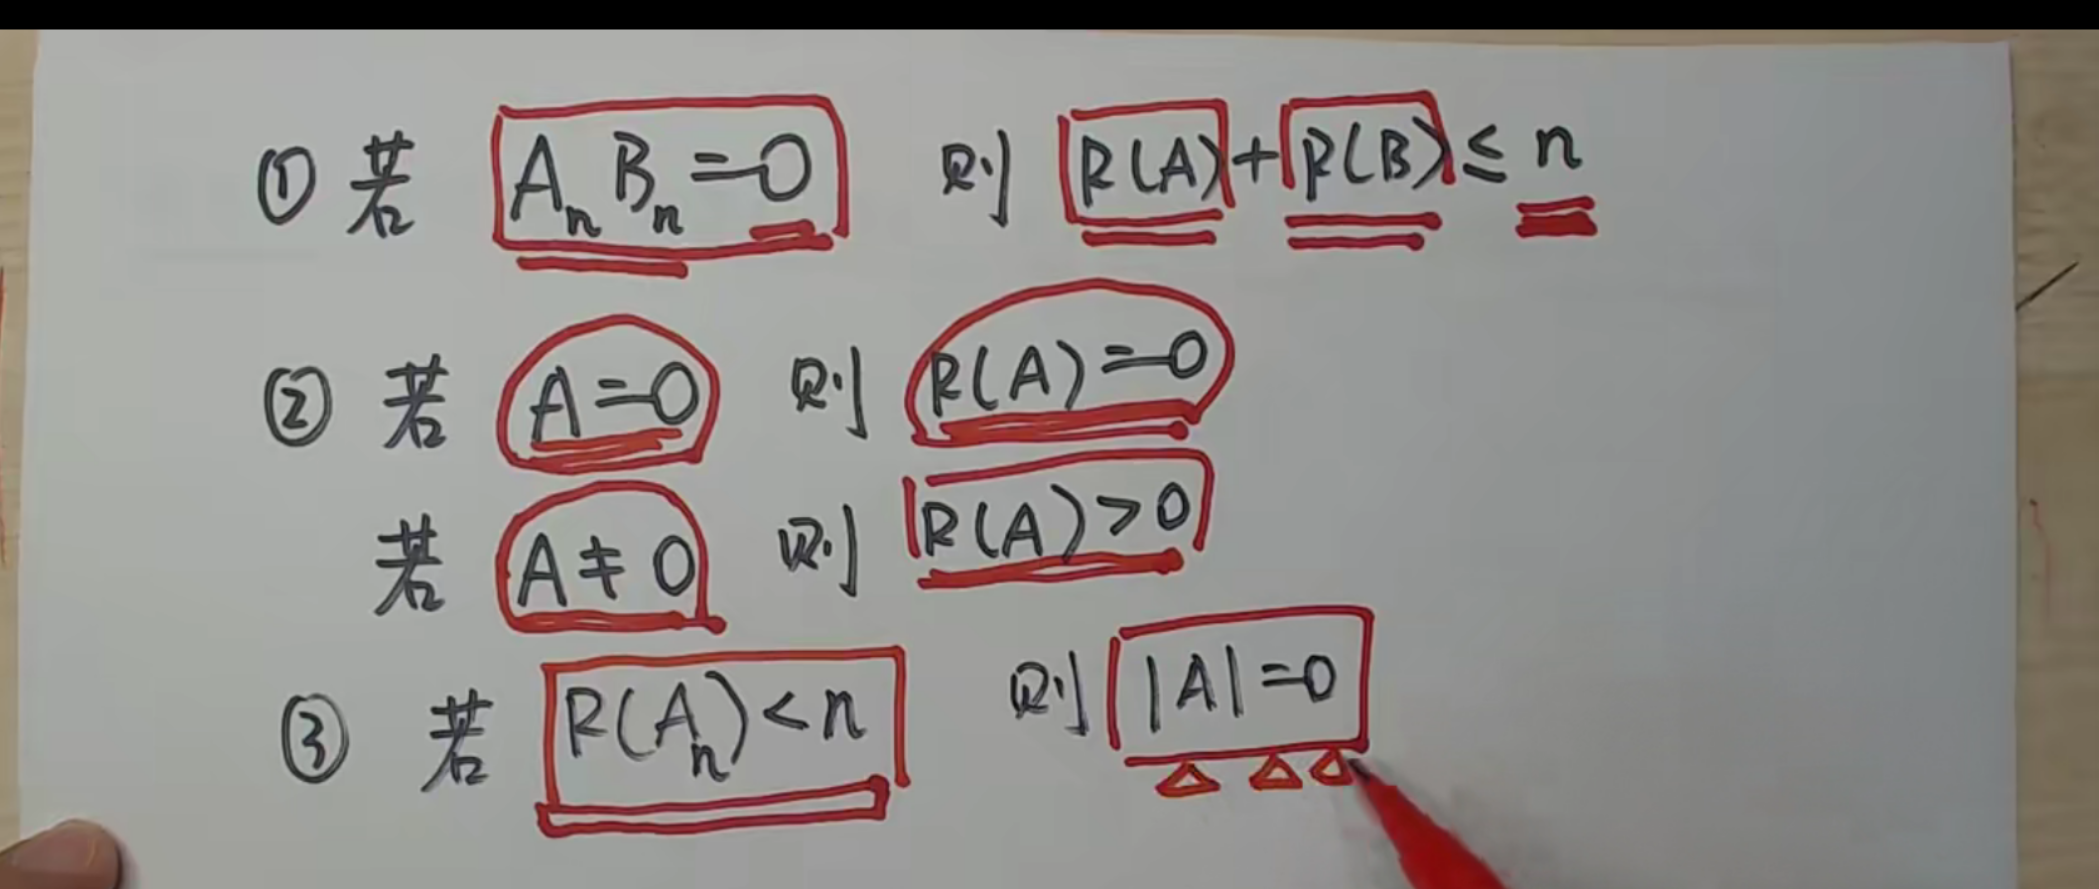 ① 若 AₙBₙ=0 则 R(A)+R(B)≤n
② 若 A=0 则 R(A)=0
若 A≠0 则 R(A)>0
③ 若 R(Aₙ)<n 则 |A|=0